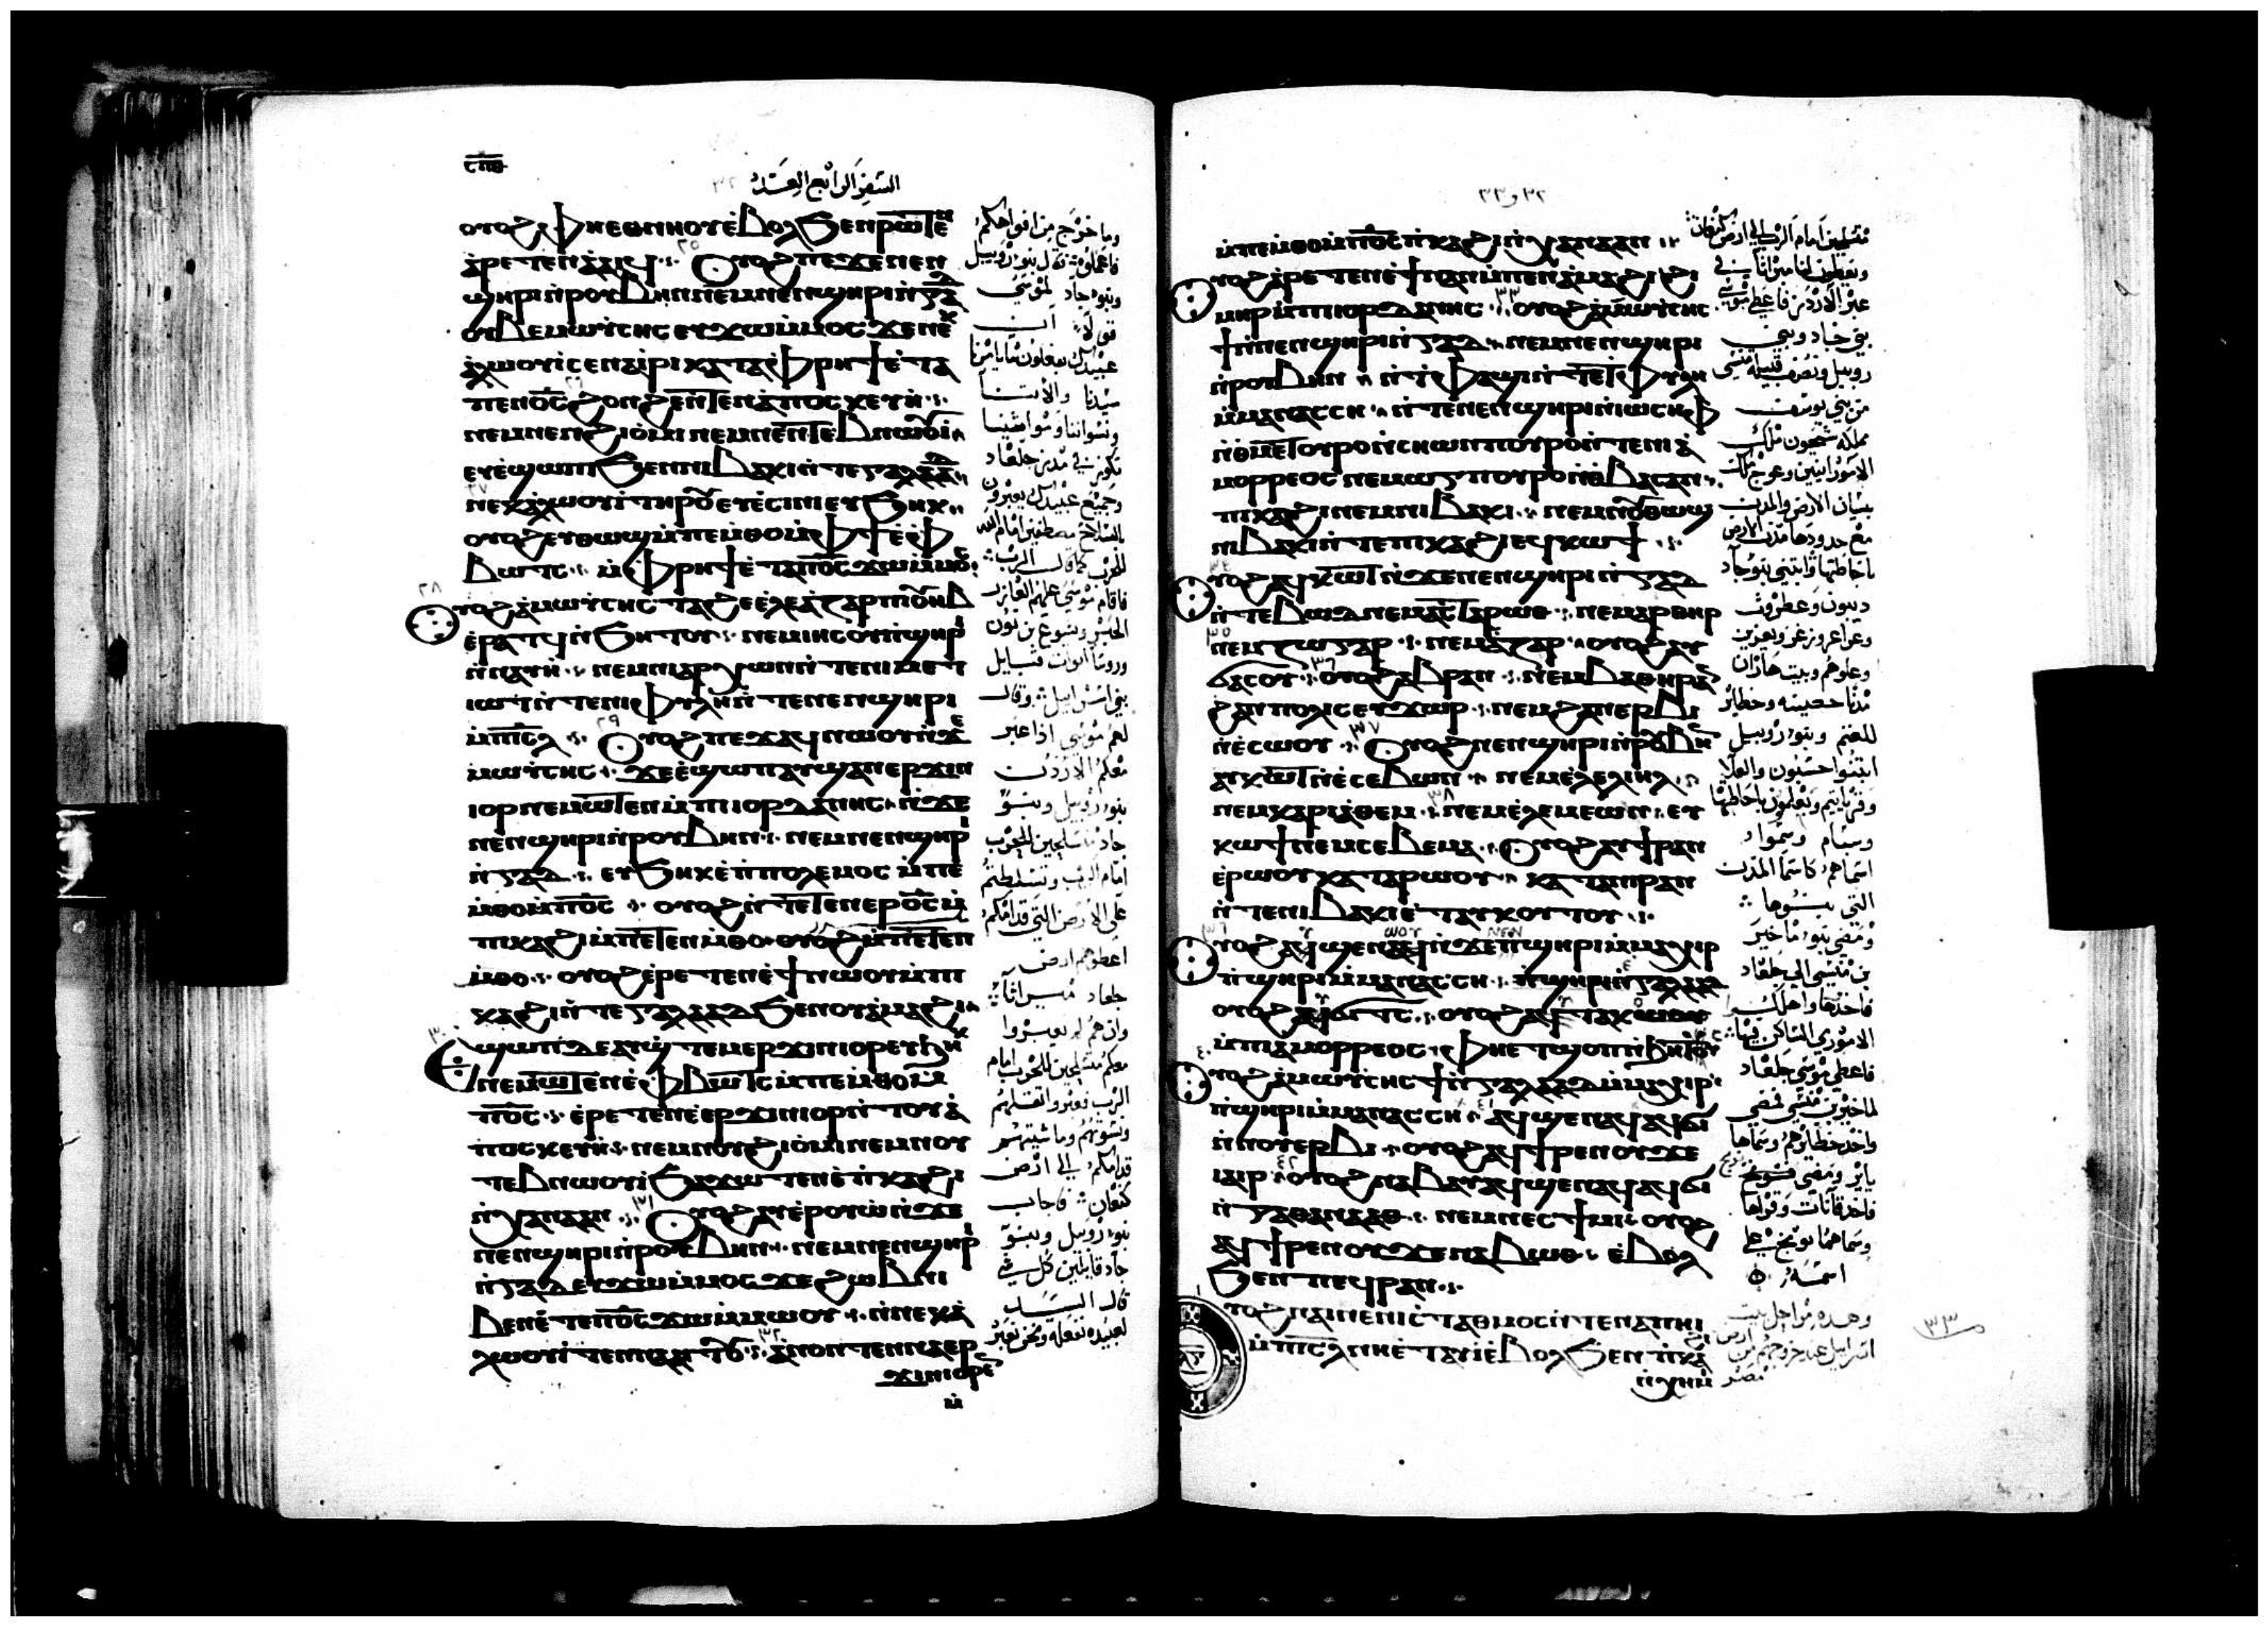 ⲥⲡⲑ
السفر الرابع العدد
ⲟⲩⲟϩ ⲫⲏⲉⲑⲛⲏⲟⲩ ⲉ̀ⲃⲟⲗ ϧⲉⲛ ⲣⲱⲧⲉⲛ
ⲁ̀ⲣⲉⲧⲉⲛⲁ̀ⲓϥ ⲟⲩⲟϩ ⲡⲉϫⲉ ⲛⲉⲛ
ϣⲏⲣⲓ ⲛ̀ⲣⲟⲩⲃⲏⲛ ⲛⲉⲙ ⲛⲉⲛϣⲏⲣⲓ ⲛ̀ⲅⲁⲇ
ⲟⲩⲃⲉ ⲙⲱⲩⲥⲏⲥ ⲉⲩϫⲱ ⲙ̀ⲙⲟⲥ ϫⲉ ⲛⲉⲕ
ⲁ̀ⲗⲱⲟⲩⲓ̀ ⲥⲉⲛⲁⲓ̀ⲣⲓ ⲕⲁⲧⲁ ⲫⲣⲏϯ ⲉ̀ⲧⲁ
ⲡⲉⲛⲟ̅ⲥ̅ ϩⲟⲛϩⲉⲛ ⲧⲉⲛⲁ̀ⲡⲟⲥⲕⲉⲩⲏ
ⲛⲉⲙ ⲛⲉⲛϩⲓⲟ̀ⲙⲓ ⲛⲉⲙ ⲛⲉⲛⲧⲉⲃⲛⲱⲟⲩⲓ̀
ⲉⲩⲉ̀ϣⲱⲡⲓ ϧⲉⲛ ⲛⲓⲃⲁⲕⲓ ⲛ̀ⲧⲉ ⲅⲁⲗⲁⲁⲇ
ⲛⲉⲕⲁ̀ⲗⲱⲟⲩⲓ̀ ⲧⲏⲣⲟⲩ ⲉⲩⲉ̀ⲥⲓⲛⲓ ⲉⲩϧⲏⲕ
ⲟⲩⲟϩ ⲉⲩⲑⲱϣ ⲙ̀ⲡⲉⲙ̀ⲑⲟ ⲙ̀ⲫϯ ⲉ̀ⲫ
ⲃⲱⲧⲥ ⲙ̀ⲫⲣⲏϯ ⲉ̀ⲧⲁ ⲡⲟ̅ⲥ̅ ϫⲱ ⲙ̀ⲙⲟⲥ
ⲟⲩⲟϩ ⲁ̀ ⲙⲱⲩⲥⲏⲥ ⲧⲁϩⲉ ⲉ̀ⲗⲉⲁ̀ⲍⲁⲣ ⲡⲓⲟⲩⲏⲃ
ⲉ̀ⲣⲁⲧϥ ⲛ̀ϧⲏⲧⲟⲩ ⲛⲉⲙ ⲓⲏⲥⲟⲩ ⲡ̀ϣⲏⲣⲓ
ⲛ̀ⲛⲁⲩⲏ ⲛⲉⲙ ⲛⲓⲁⲣⲭⲱⲛ ⲛ̀ⲧⲉ ⲛⲓⲙⲉⲧ
ⲓⲱⲧ ⲛ̀ⲧⲉ ⲛⲓⲫⲩⲗⲏ ⲛ̀ⲧⲉ ⲛⲉⲛϣⲏⲣⲓ
ⲙ̀ⲡⲓ̅ⲥ̅ⲗ̅ ⲟⲩⲟϩ ⲡⲉϫⲁϥ ⲛⲱⲟⲩ ⲛ̀ϫⲉ
ⲙⲱⲩⲥⲏⲥ ϫⲉ ⲉ̀ϣⲱⲡ ⲁⲩϣⲁⲛⲉⲣϫⲓⲛ
ⲓⲟⲣ ⲛⲉⲙⲱⲧⲉⲛ ⲙ̀ⲡⲓⲓⲟⲣⲇⲁⲛⲏⲥ ⲛ̀ϫⲉ
ⲛⲉⲛϣⲏⲣⲓ ⲛ̀ⲣⲟⲩⲃⲏⲛ ⲛⲉⲙ ⲛⲉⲛϣⲏⲣⲓ
ⲛ̀ⲅⲁⲇ ⲉⲩϧⲏⲕ ⲉ̀ⲡ̀ⲡⲟⲗⲉⲙⲟⲥ ⲙ̀ⲡⲉ
ⲙ̀ⲑⲟ ⲙ̀ⲡⲟ̅ⲥ̅ ⲟⲩⲟϩ ⲛ̀ⲧⲉⲧⲉⲛⲉⲣⲟ̅ⲥ̅ ⲙ̀
ⲡⲓⲕⲁϩⲓ ⲙ̀ⲡⲉⲧⲉⲛⲙ̀ⲑⲟ ⲟⲩⲟϩ ⲙ̀ⲡⲉⲧⲉⲛ
ⲙ̀ⲑⲟ ⲟⲩⲟϩ ⲉ̀ⲣⲉⲧⲉⲛⲉ̀ϯ ⲛⲱⲟⲩ ⲙ̀ⲡⲓ
ⲕⲁϩⲓ ⲛ̀ⲧⲉ ⲅⲁⲗⲁⲁⲇ ϧⲉⲛ ⲟⲩⲁ̀ⲙⲁϩⲓ
ⲉϣⲱⲡ ⲇⲉ ⲁⲩϣⲧⲉⲙⲉⲣϫⲓⲛⲓⲟⲣ ⲉⲩϧⲏⲕ
ⲛⲉⲙⲱⲧⲉⲛ ⲉ̀ⲫⲃⲱⲧⲥ ⲙ̀ⲡⲉⲙ̀ⲑⲟ ⲙ̀
ⲡⲟ̅ⲥ̅ ⲉ̀ⲣⲉⲧⲉⲛⲉ̀ⲉⲣϫⲓⲛⲓⲟⲣ ⲛ̀ⲧⲟⲩⲁ̀
ⲡⲟⲥⲕⲉⲩⲏ ⲛⲉⲙ ⲛⲟⲩϩⲓⲟ̀ⲙⲓ ⲛⲉⲙ ⲛⲟⲩ
ⲧⲉⲃⲛⲱⲟⲩⲓ̀ ϧⲁϫⲱⲧⲉⲛ ⲉ̀ⲡ̀ⲕⲁϩⲓ
ⲛ̀ⲭⲁⲛⲁⲁⲛ ⲟⲩⲟϩ ⲁⲩⲉ̀ⲣⲟⲩⲱ̀ ⲛ̀ϫⲉ
ⲛⲉⲛϣⲏⲣⲓ ⲛ̀ⲣⲟⲩⲃⲏⲛ ⲛⲉⲙ ⲛⲉⲛϣⲏⲣⲓ
ⲛ̀ⲅⲁⲇ ⲉⲩϫⲱ ⲙ̀ⲙⲟⲥ ϫⲉ ϩⲱⲃ ⲛⲓ
ⲃⲉⲛ ⲉ̀ⲧⲉ ⲡⲟ̅ⲥ̅ ϫⲱ ⲙ̀ⲙⲱⲟⲩ ⲛ̀ⲛⲉⲕⲁ̀
ⲗⲱⲟⲩⲓ̀ ⲧⲉⲛⲛⲁⲁⲓⲧⲟⲩ ⲁ̀ⲛⲟⲛ ⲧⲉⲛⲛⲁⲉⲣ
ϫⲓⲛⲓⲟⲣ
وما خرج من افواهكم
فاعملوه قال بنو روبيل
وبنو جاد لموسى
عبيدك يفعلون ما يامرنا
سيدنا والامتنا
ونسواننا ومواشينا
تكون في مدن جلعاد
وجميع عبيدك يعبرون
بالسلاح مصطفين امام الله
للحرب كما قال الرب
فاقام موسى عليهم العازر
الحبر ويشوع بن نون
وروسا ابوات قبايل
بني اسراييل وقال
لهم موسى اذا عبر
معكم الاردن
بنو روبيل وبنو
جاد متسلحين للحرب
امام الرب وتسلطتم
على الارض التي قدامكم
اعطوهم ارض
جلعاد ميراثا
وان هم لم يعبروا
معكم متسلحين للحرب امام
الرب فعبروا اثقلهم
ونسوتهم وماشيتهم
قدامكم الى ارض
كنعان فاجاب
بنو روبيل وبنو
جاد قايلين كل شي
قال السيد
لعبيده نفعله ونحن نعبر
٣٢ و ٣٣
ⲙ̀ⲡⲉⲙ̀ⲑⲟ ⲙ̀ⲡⲟ̅ⲥ̅ ⲛ̀ⲕⲁϩⲓ ⲛ̀ⲭⲁⲛⲁⲁⲛ
ⲟⲩⲟϩ ⲁ̀ⲣⲉⲧⲉⲛⲉ̀ϯ ⲛⲁⲛ ⲙ̀ⲡⲉⲛⲁ̀ⲙⲁϩⲓ ϩⲓ
ⲙⲏⲣ ⲙ̀ⲡⲓⲓⲟⲣⲇⲁⲛⲏⲥ ⲟⲩⲟϩ ⲁ̀ ⲙⲱⲩⲥⲏⲥ
ϯ ⲛ̀ⲛⲉⲛϣⲏⲣⲓ ⲛ̀ⲅⲁⲇ ⲛⲉⲙ ⲛⲉⲛϣⲏⲣⲓ
ⲛ̀ⲣⲟⲩⲃⲏⲛ ⲛ̀ⲧⲉ ⲫⲁϣⲓ ⲛ̀ⲧⲉ ⲧⲫⲩⲗⲏ
ⲙ̀ⲙⲁⲛⲁⲥⲥⲏ ⲛ̀ⲧⲉ ⲛⲉⲛϣⲏⲣⲓ ⲛ̀ⲓⲱⲥⲏⲫ
ⲛ̀ⲑⲙⲉⲧⲟⲩⲣⲟ ⲛ̀ⲥⲏⲱⲛ ⲡⲟⲩⲣⲟ ⲛ̀ⲧⲉ ⲛⲓⲁ̀
ⲙⲟⲣⲣⲉⲟⲥ ⲛⲉⲙ ⲱⲅ ⲡⲟⲩⲣⲟ ⲛ̀ⲑⲃⲁⲥⲁⲛ
ⲡⲓⲕⲁϩⲓ ⲛⲉⲙ ⲛⲓⲃⲁⲕⲓ ⲛⲉⲙ ⲛⲟⲩⲑⲱϣ
ⲛⲓⲃⲁⲕⲓ ⲛ̀ⲧⲉ ⲡⲓⲕⲁϩⲓ ⲉϥⲕⲱϯ
ⲟⲩⲟϩ ⲁϥⲕⲱⲧ ⲛ̀ϫⲉ ⲛⲉⲛϣⲏⲣⲓ ⲛ̀ⲅⲁⲇ
ⲛ̀ⲧⲉⲃⲱⲇ ⲛⲉⲙ ⲁⲥⲧⲁⲣⲱⲑ ⲛⲉⲙ ⲁⲣⲟⲏⲣ
ⲛⲉⲙ ⲍⲱⲅⲁⲣ ⲛⲉⲙ ⲓⲁⲍⲏⲣ ⲟⲩⲟϩ ⲁⲩ
ϭⲁⲥⲟⲩ ⲟⲩⲟϩ ⲁⲃⲣⲁⲛ ⲛⲉⲙ ⲃⲁⲑⲏⲣⲁⲛ
ϩⲁⲛⲡⲟⲗⲓⲥ ⲉⲩϫⲱⲣ ⲛⲉⲙ ϩⲁⲛⲉⲣⲃⲓ
ⲛ̀ⲉ̀ⲥⲱⲟⲩ ⲟⲩⲟϩ ⲛⲉⲛϣⲏⲣⲓ ⲛ̀ⲣⲟⲩⲃⲏⲛ
ⲁⲩⲕⲱⲧ ⲛ̀ⲉ̀ⲥⲉⲃⲱⲛ ⲛⲉⲙ ⲉ̀ⲗⲉⲗⲏⲗ
ⲛⲉⲙ ⲕⲁⲣⲓⲁ̀ⲑⲉⲙ ⲛⲉⲙ ⲉ̀ⲗⲉⲙⲉⲱⲛ ⲉⲩ
ⲕⲱϯ ⲛⲉⲙ ⲥⲉⲃⲉⲙⲁ ⲟⲩⲟϩ ⲁⲩϯⲣⲁⲛ
ⲉ̀ⲣⲱⲟⲩ ⲕⲁⲧⲁⲣⲱⲟⲩ ⲕⲁⲧⲁ ⲛⲓⲣⲁⲛ
ⲛ̀ⲧⲉ ⲛⲓⲃⲁⲕⲓ ⲉ̀ⲧⲁⲩⲕⲟⲧⲟⲩ
ⲟⲩⲟϩ ⲁϥϣⲉⲛⲁϥ ⲛ̀ϫⲉ ⲡ̀ϣⲏⲣⲓ ⲙ̀ⲙⲁⲭⲓⲣ
ⲡ̀ϣⲏⲣⲓ ⲙ̀ⲙⲁⲛⲁⲥⲥⲏ ⲛ̀ϣⲏⲣⲓ ⲛ̀ⲅⲁⲗⲁⲁⲇ
ⲟⲩⲟϩ ⲁϥϭⲓⲧⲥ ⲟⲩⲟϩ ⲁϥⲧⲁⲕⲱⲟⲩ
ⲙ̀ⲡⲓⲁⲙⲟⲣⲣⲉⲟⲥ ⲫⲏⲉⲧϣⲟⲡ ⲛ̀ϧⲏⲧⲟⲩ
ⲟⲩⲟϩ ⲁ̀ ⲙⲱⲩⲥⲏⲥ ϯ ⲛ̀ⲅⲁⲗⲁⲁⲇ ⲙ̀ⲙⲁⲭⲓⲣ
ⲡ̀ϣⲏⲣⲓ ⲙ̀ⲙⲁⲛⲁⲥⲥⲏ ⲁϥϣⲉⲛⲁϥ ⲁϥϭⲓ
ⲛ̀ⲛⲟⲩⲉⲣⲃⲓ ⲟⲩⲟϩ ⲁϥϯⲣⲉⲛⲟⲩ ϫⲉ
ⲓⲁⲓⲣ ⲟⲩⲟϩ ⲛⲁⲃⲁⲩ ⲁϥϣⲉⲛⲁϥ ⲁϥϭⲓ
ⲛ̀ⲅⲁⲑⲁⲛⲁⲑ ⲛⲉⲙ ⲛⲉⲥϯⲙⲓ ⲟⲩⲟϩ
ⲁϥϯⲣⲉⲛⲟⲩ ϫⲉ ⲛⲁⲃⲱⲑ ⲉ̀ⲃⲟⲗ
ϧⲉⲛ ⲡⲉϥⲣⲁⲛ
ⲟⲩⲟϩ ⲛⲁⲓ ⲛⲉ ⲛⲓⲥⲧⲁⲑⲙⲟⲥ ⲛ̀ⲧⲉ ⲛⲁⲡⲏⲓ
ⲙ̀ⲡⲓ̅ⲥ̅ⲗ̅ ⲛⲏⲉ̀ⲧⲁⲩⲓ̀ ⲉ̀ⲃⲟⲗ ϧⲉⲛ ⲡ̀ⲕⲁϩⲓ
ⲛ̀ⲭⲏⲙⲓ
متسلحين امام الرب الى ارض كنعان
عبر الاردن فاعطى موسى
بني جاد وبني
روبيل ونصف قبيلة منسى
من بني يوسف
مملكة سيحون ملك
الامورانيين وعوج ملك
بيسان الارض والمدن
مع حدودها مدن الارض
باحاطتها وابتنى بنو جاد
ديبون وعطروت
مدنا حصينة وحظاير
للغنم وبنو روبيل
ابتنوا حسبون والعلا
وسموا
اسماهم كاسما المدن
التي بنوها
ومضى بنو ماخير
بن منسى الى جلعاد
فاخذها واهلك
الاموري الساكن فيها
فاعطى موسى جلعاد
لماخير بن منسى فمضى
واخذ حظايرهم وسماها
ياير ومضى نوبح
فاخذ قاثاث وقراها
وسماهما نوبح على
اسمه
وهذه مراحل بيت
اسراييل عند خروجهم من ارض
مصر
٣٣